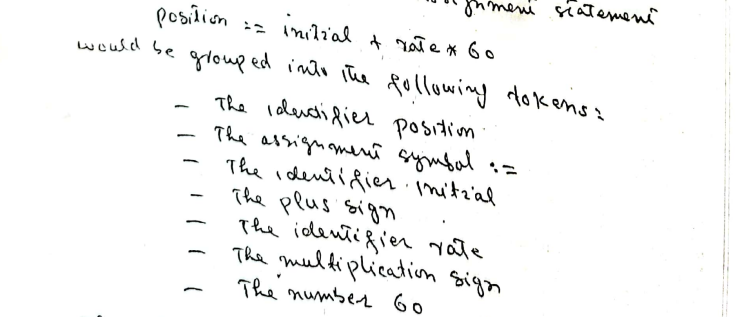 assignment statement
position := initial + rate * 60
would be grouped into the following tokens:
- The identifier position.
- The assignment symbol :=
- The identifier initial
- The plus sign
- The identifier rate
- The multiplication sign
- The number 60